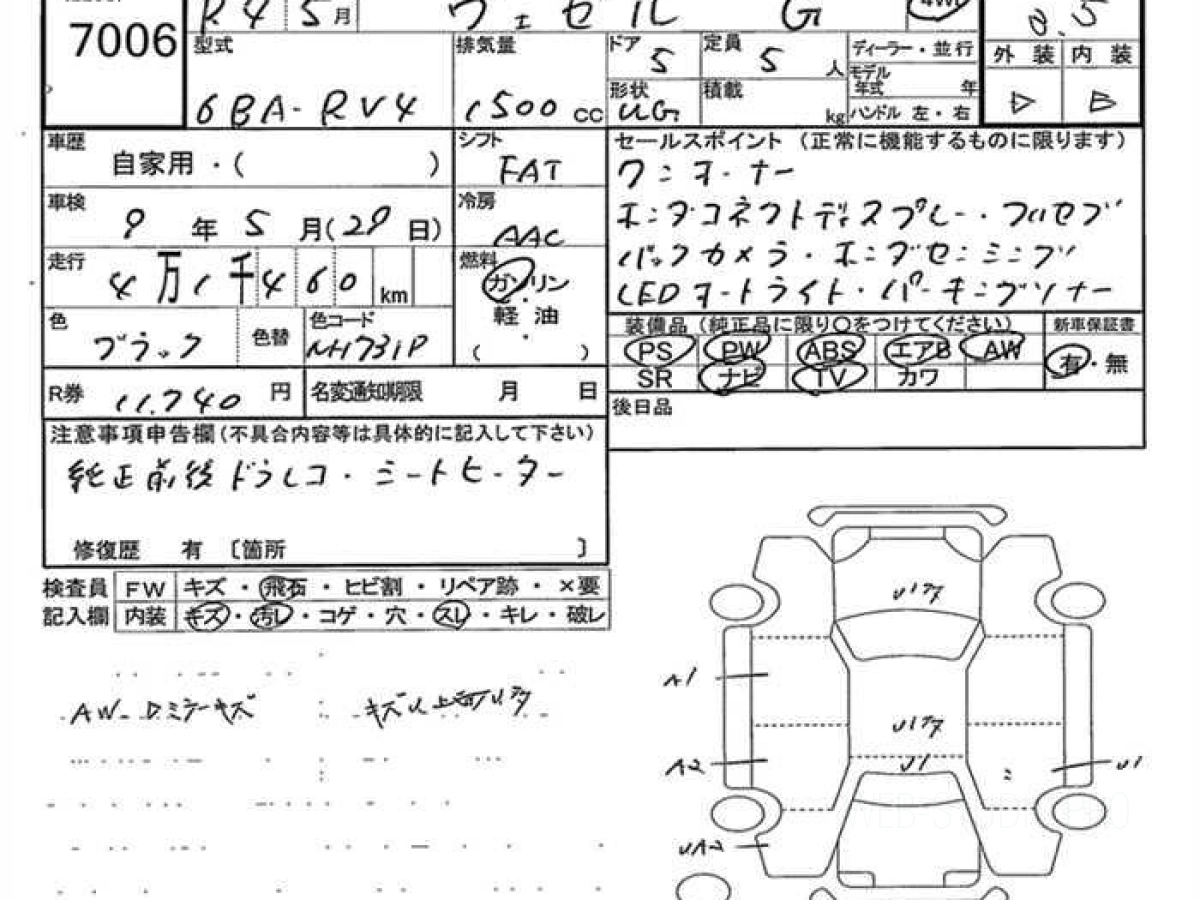 7006
R4 5月 ヴェゼル G 4WD
型式 排気量 ドア 5 定員 5人 ディーラー・並行 外装 内装
6BA-RV4 1500cc 形状 UG 積載 kg モデル年式 年 ハンドル 左・右
車歴 自家用・( ) シフト FAT
セールスポイント (正常に機能するものに限ります)
ワンオーナー
車検 9年5月(29日) 冷房 AAC
ホンダコネクトディスプレー・フルセグ
バックカメラ・ホンダセンシング
LEDオートライト・パーキングソナー
走行 4万1千460km 燃料 ガソリン・軽油・( )
色 ブラック 色替 色コード NH731P
装備品 (純正品に限り○をつけてください) 新車保証書
PS PW ABS エアB AW 有・無
SR ナビ TV カワ
R券 11.740円 名変通知期限 月 日
後日品
注意事項申告欄(不具合内容等は具体的に記入して下さい)
純正前後ドラレコ・シートヒーター
修復歴 有 〔箇所 〕
検査員 FW キズ・飛石・ヒビ割・リペア跡・×要
記入欄 内装 キズ・汚レ・コゲ・穴・スレ・キレ・破レ
A1
A2
UA2
U1
U1